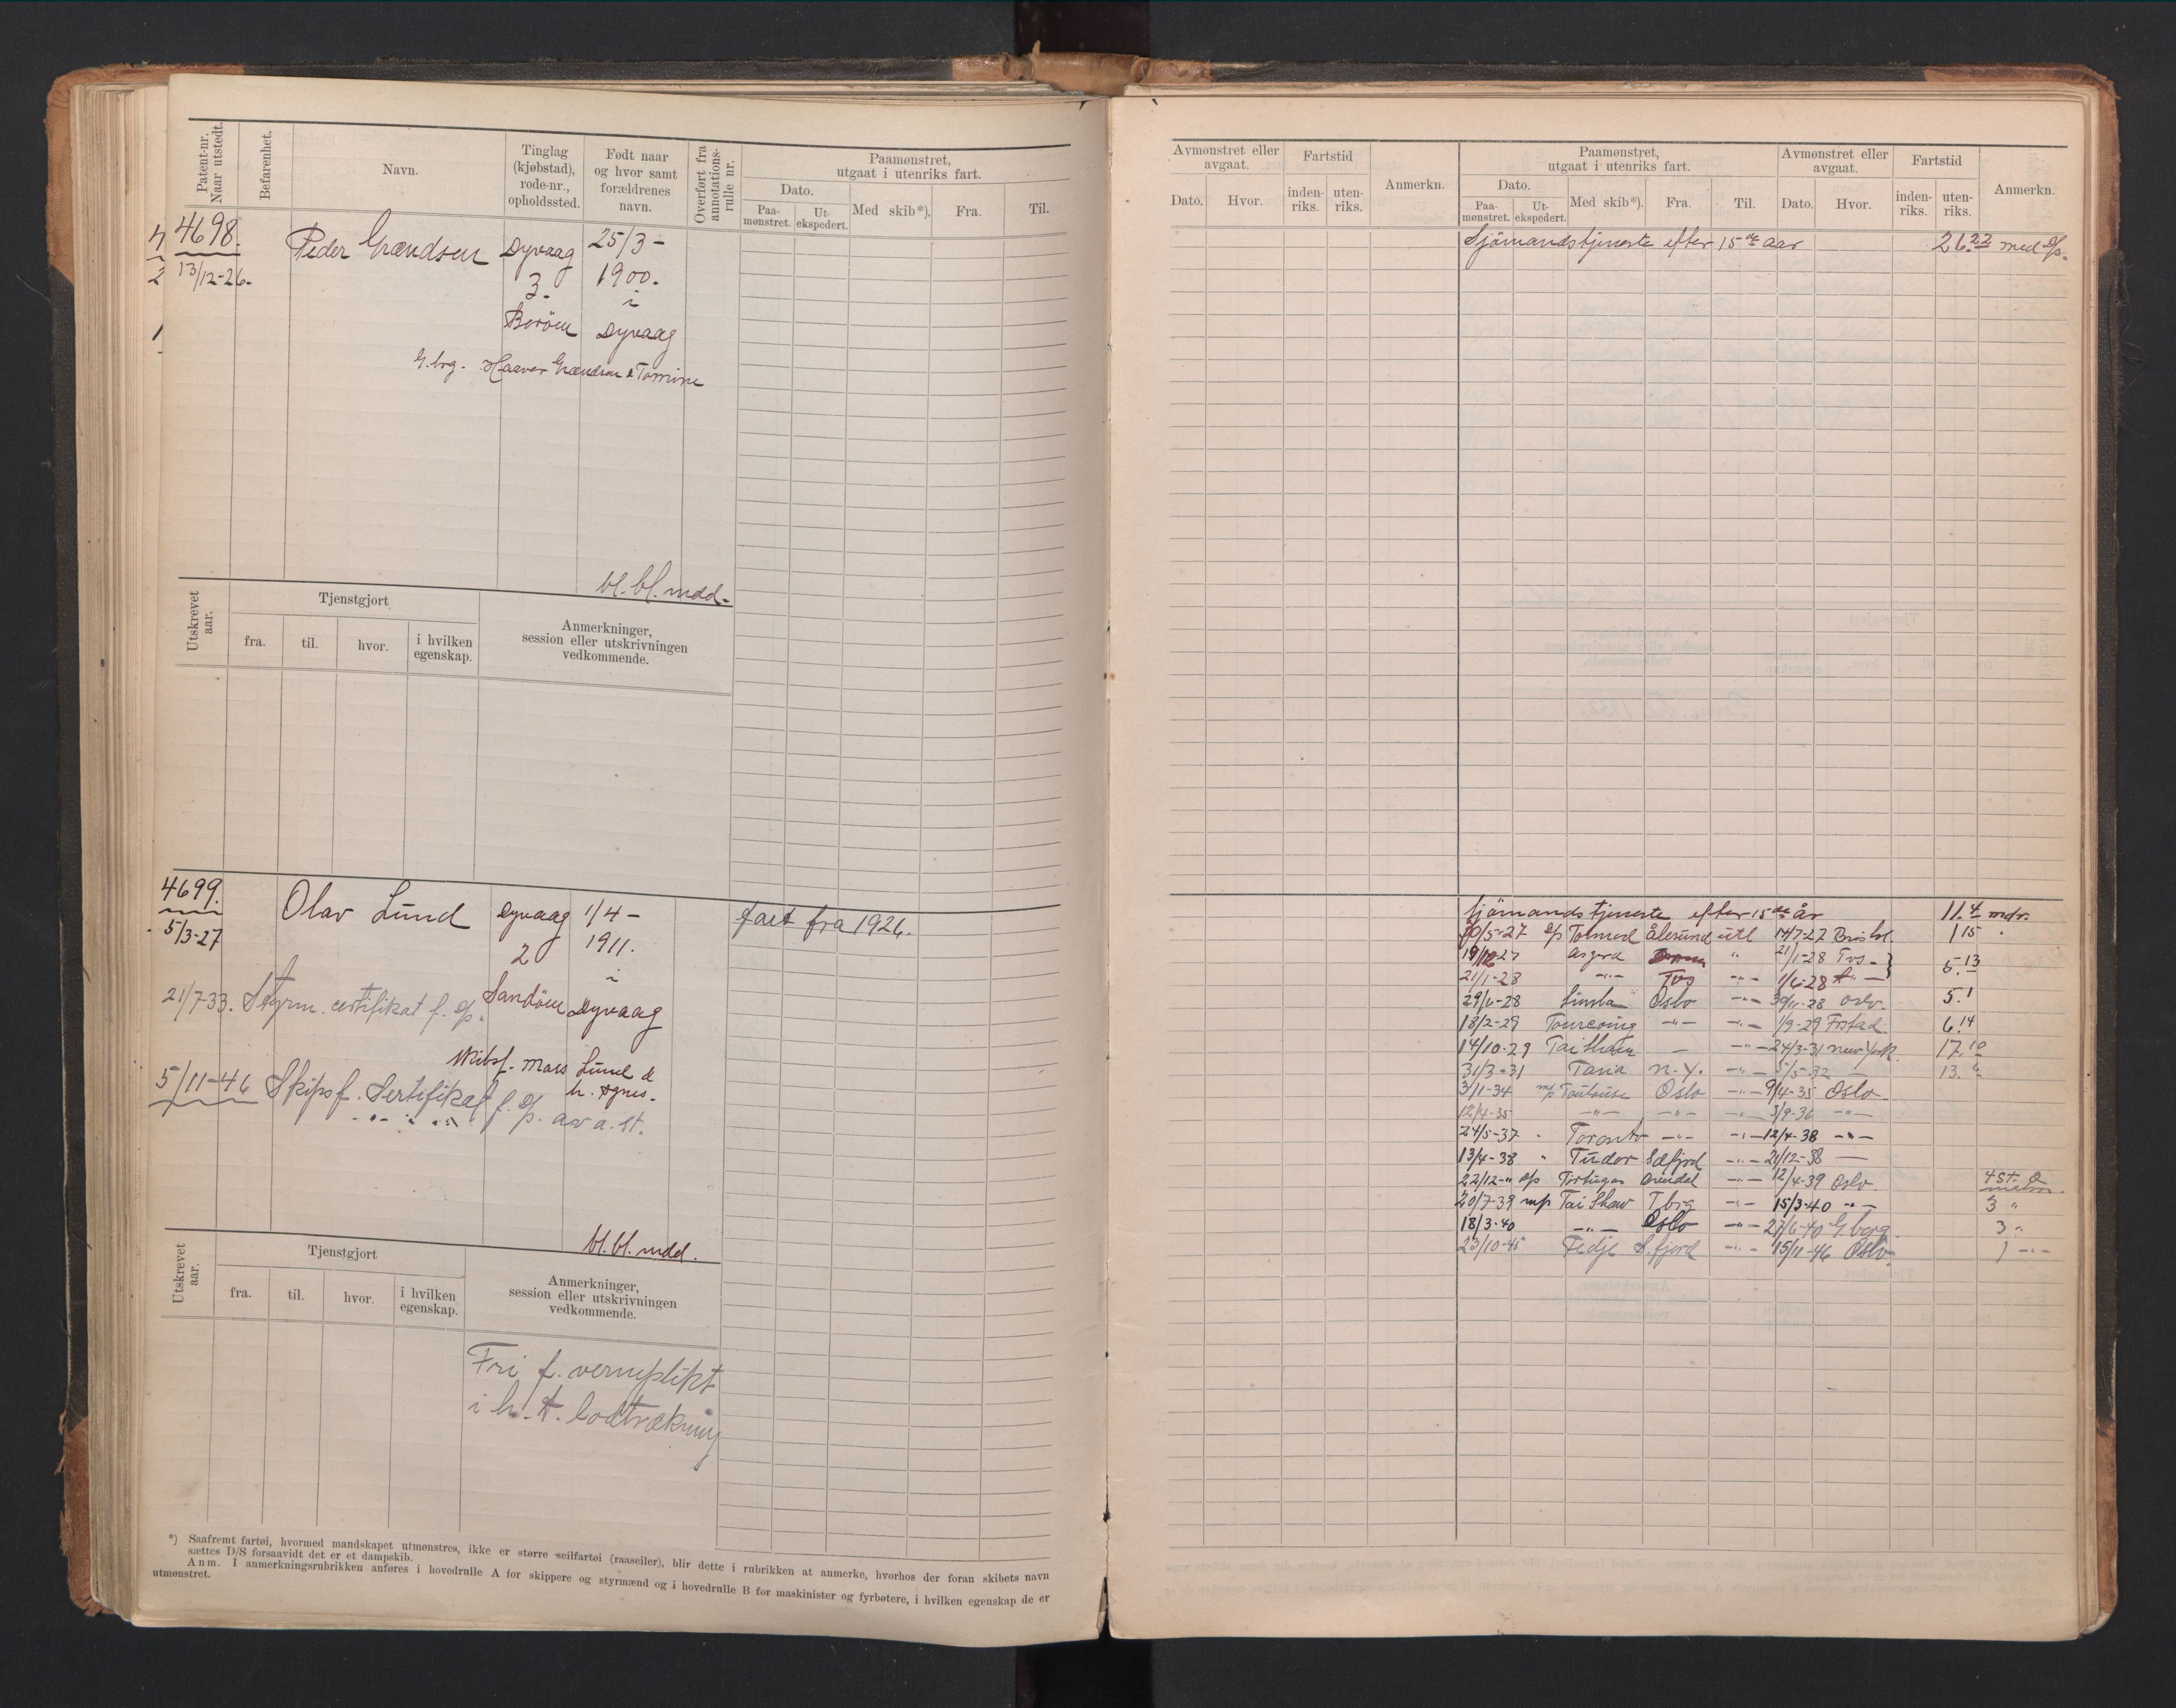 Patent-nr. Naar utstedt.
Befarenhet.
Navn.
Tinglag (kjøbstad), rode-nr., opholdssted.
Født naar og hvor samt forældrenes navn.
Overført fra annotations-rulle nr.
Paamønstret, utgaat i utenriks fart.
Dato.
Paa-mønstret.
Ut-ekspedert.
Med skib*).
Fra.
Til.
4698.
13/12-26.
Peder
Dyvaag
3.
Borøen
25/3-
1900.
i
Dyvaag
bl. bl. mdd.
Utskrevet aar.
Tjenstgjort
fra.
til.
hvor.
i hvilken egenskap.
Anmerkninger, session eller utskrivningen vedkommende.
4699.
5/3-27
Olav Lund
Dyvaag
2
Sandøen
1/4-
1911.
i
Dyvaag
fart fra 1926.
21/7-33. Styrm. certifikat f. D/p.
Skibsf. Lund &
h. Agnes.
5/11-46 Skipsf. Sertifikat f. D/p.
-"- -"- f. p. av a. st.
bl. bl. mdd.
Utskrevet aar.
Tjenstgjort
fra.
til.
hvor.
i hvilken egenskap.
Anmerkninger, session eller utskrivningen vedkommende.
Fri f. verneplikt
i h. t. lodtrækning
*) Saafremt fartøi, hvormed mandskapet utmønstres, ikke er større seilfartøi (raaseiler), blir dette i rubrikken at anmerke, hvorhos der foran skibets navn
sættes D/S forsaavidt det er et dampskib.
Anm. I anmerkningsrubrikken anføres i hovedrulle A for skippere og styrmænd og i hovedrulle B for maskinister og fyrbøtere, i hvilken egenskap de er
utmønstret.
Avmønstret eller avgaat.
Dato.
Hvor.
Fartstid
inden-riks.
uten-riks.
Anmerkn.
Paamønstret, utgaat i utenriks fart.
Dato.
Paa-mønstret.
Ut-ekspedert.
Med skib*).
Fra.
Til.
Avmønstret eller avgaat.
Dato.
Hvor.
Fartstid
inden-riks.
uten-riks.
Anmerkn.
Sjömandstjeneste efter 15de aar 26.22 med D/p.
Sjömandstjeneste efter 15de år 11.4 mdr.
30/5-27 D/p Ålesund utl 14/7-27 1 15 "
Asgerd " 21/1-28 Tvs -
21/1-28 -"- Tvs -"- 1/6-28 5.13
29/6-28 Simla Oslo -"- 30/11-28 Oslo. 5.1
18/2-29 Tourcoing -"- -"- 1/9-29 Frstad. 6.14
14/10-29 Tai Shan - -"- 24/3-31 New York. 17.10
31/3-31 Taria N.Y. -"- 5/5-32 - 13.
3/11-34 m/p Toulouse Oslo -"- 9/4-35 Oslo -
12/4-35 -"- -"- -"- 3/9-36 -"-
24/5-37 " Toronto -"- -"- 12/4-38 -"-
13/4-38 " Tudor -"- 21/12-38 -
22/12-" D/p Tortugas Arendal -"- 12/4-39 Oslo. 4 St.
20/7-39 m/p Tai Shan T brg -"- 15/3-40 -"- 3 "
18/3-40 -"- Oslo -"- 27/6-40 G. borg 3 "
23/10-45 Fedje S. fjord -"- 15/11-46 Oslo. 1 -"-